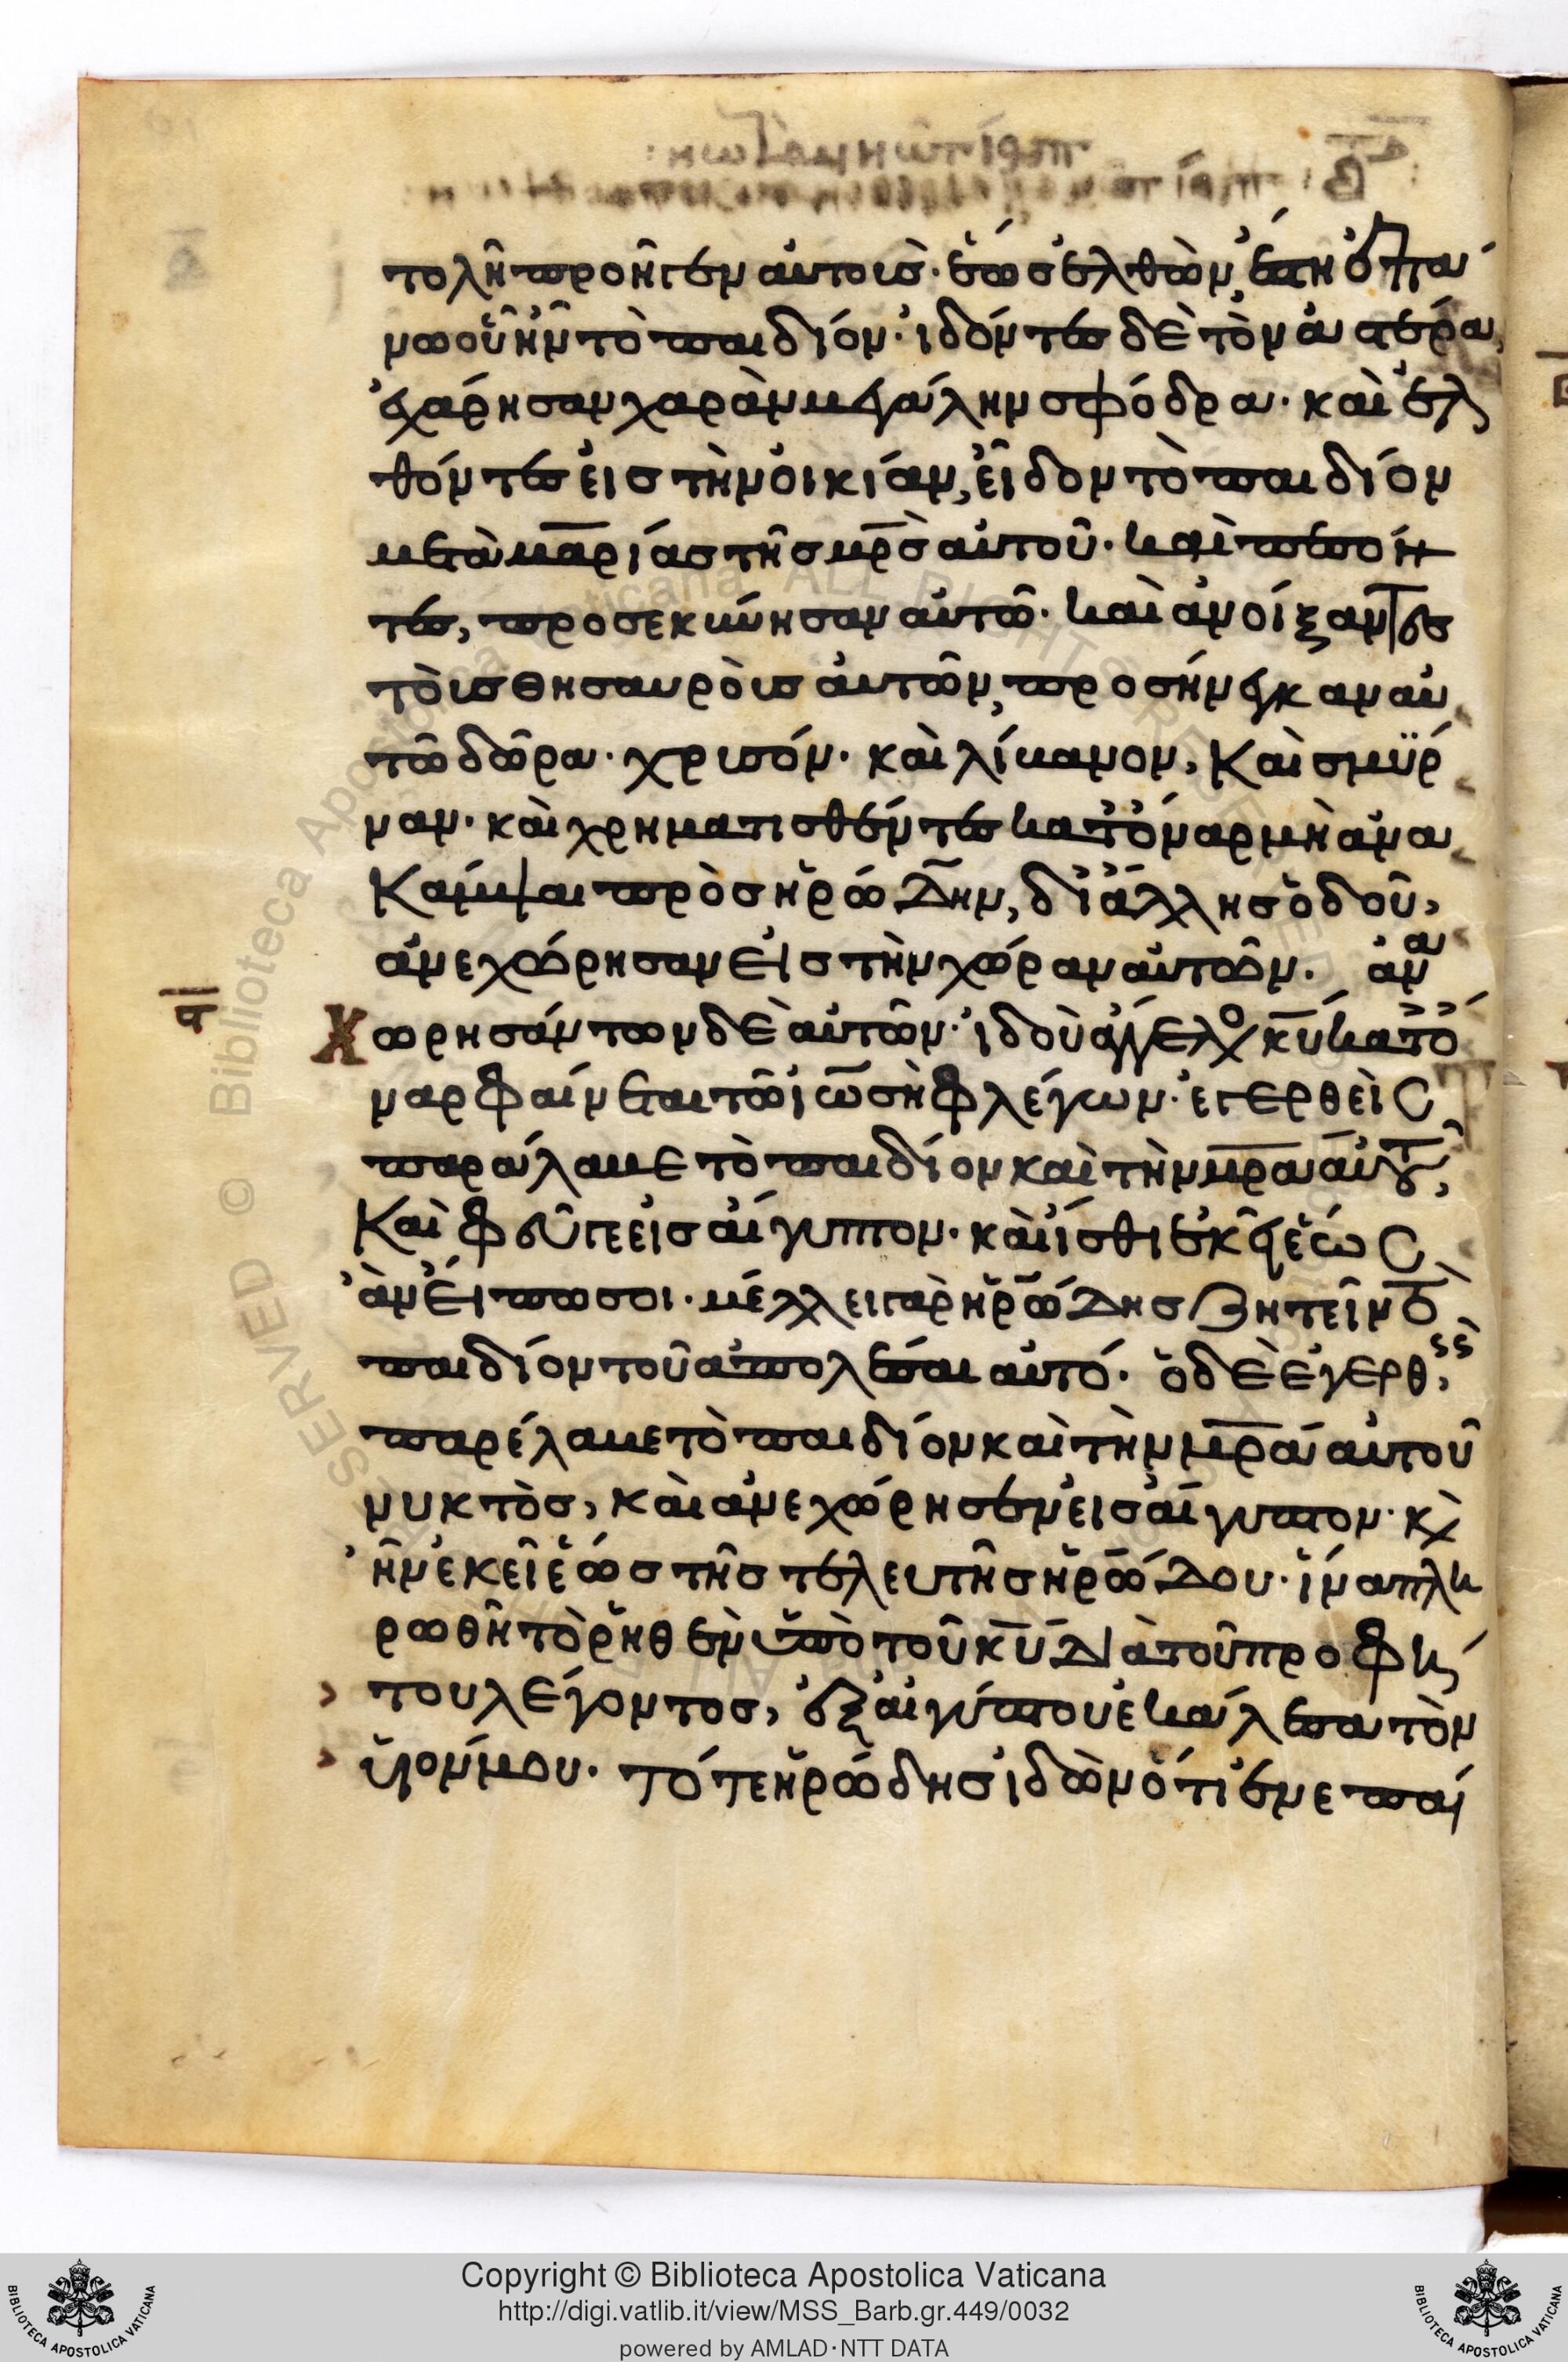 τολῆ προῆγεν αὐτοὺσ· ἕωσ ἐλθὼν, ἔστη ἐπά
νω οὗ ἦν τὸ παιδίον· ἰδόντεσ δὲ τὸν ἀστέρα,
ἐχάρησαν χαρὰν μεγάλην σφόδρα· καὶ ἐλ
θόντεσ εἰσ τὴν οἰκίαν, εἶδον τὸ παιδίον
μετὰ μαρίασ τῆσ μρ̅σ αὐτοῦ· καὶ πεσόν
τεσ, προσεκύνησαν αὐτῶ· καὶ ἀνοίξαντεσ
τοὺσ θησαυροὺσ αὐτῶν, προσήνεγκαν αὐ
τῶ δῶρα· χρυσόν· καὶ λίβανον, καὶ σμύρ
ναν· καὶ χρηματισθέντεσ κατ' ὄναρ μὴ ἀνα
κάμψαι πρὸσ ἡρώδην, δι' ἄλλησ ὁδοῦ,
ἀνεχώρησαν εἰσ τὴν χώραν αὐτῶν. ἀνα
Χωρησάντων δὲ αὐτῶν· ἰδοὺ ἄγγελοσ κ̅υ κατ' ὄ
ναρ φαίνεται τῶ ἰωσὴφ λέγων· ἐγερθεὶσ
παράλαβε τὸ παιδίον καὶ τὴν μρ̅α αὐτοῦ,
καὶ φεῦγε εἰσ αἴγυπτον· καὶ ἴσθι ἐκεῖ ἕωσ
ἂν εἴπω σοι· μέλλει γὰρ ἡρώδησ ζητεῖν τὸ
παιδίον τοῦ ἀπολέσαι αὐτό· ὁ δὲ ἐγερθεὶσ,
παρέλαβε τὸ παιδίον καὶ τὴν μρ̅α αὐτοῦ
νυκτὸσ, καὶ ἀνεχώρησεν εἰσ αἴγυπτον· κὶ
ἦν ἐκεῖ ἕωσ τῆσ τελευτῆσ ἡρώδου· ἵνα πλη
ρωθῆ τὸ ῥηθὲν ὑπὸ τοῦ κ̅υ διὰ τοῦ προφή
> του λέγοντοσ, ἐξ αἰγύπτου ἐκάλεσα τὸν
> υἱόν μου. τότε ἡρώδησ ἰδὼν ὅτι ἐνεπαί
Copyright © Biblioteca Apostolica Vaticana
http://digi.vatlib.it/view/MSS_Barb.gr.449/0032
powered by AMLAD·NTT DATA
BIBLIOTECA APOSTOLICA VATICANA
BIBLIOTECA APOSTOLICA VATICANA